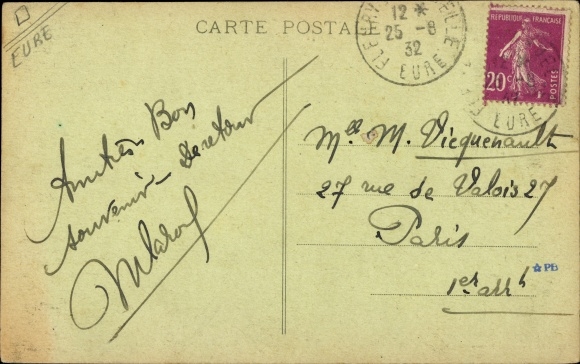 EURE
CARTE POSTALE
FLEURY ELLE
12 *
25 - 8
32
EURE
REPUBLIQUE FRANÇAISE
20c
EURE
Amitiés Bon
souvenir - de retour
Mlle M. Vicquenault
27 rue de Valois 27
Paris
1er arrt
☆PB